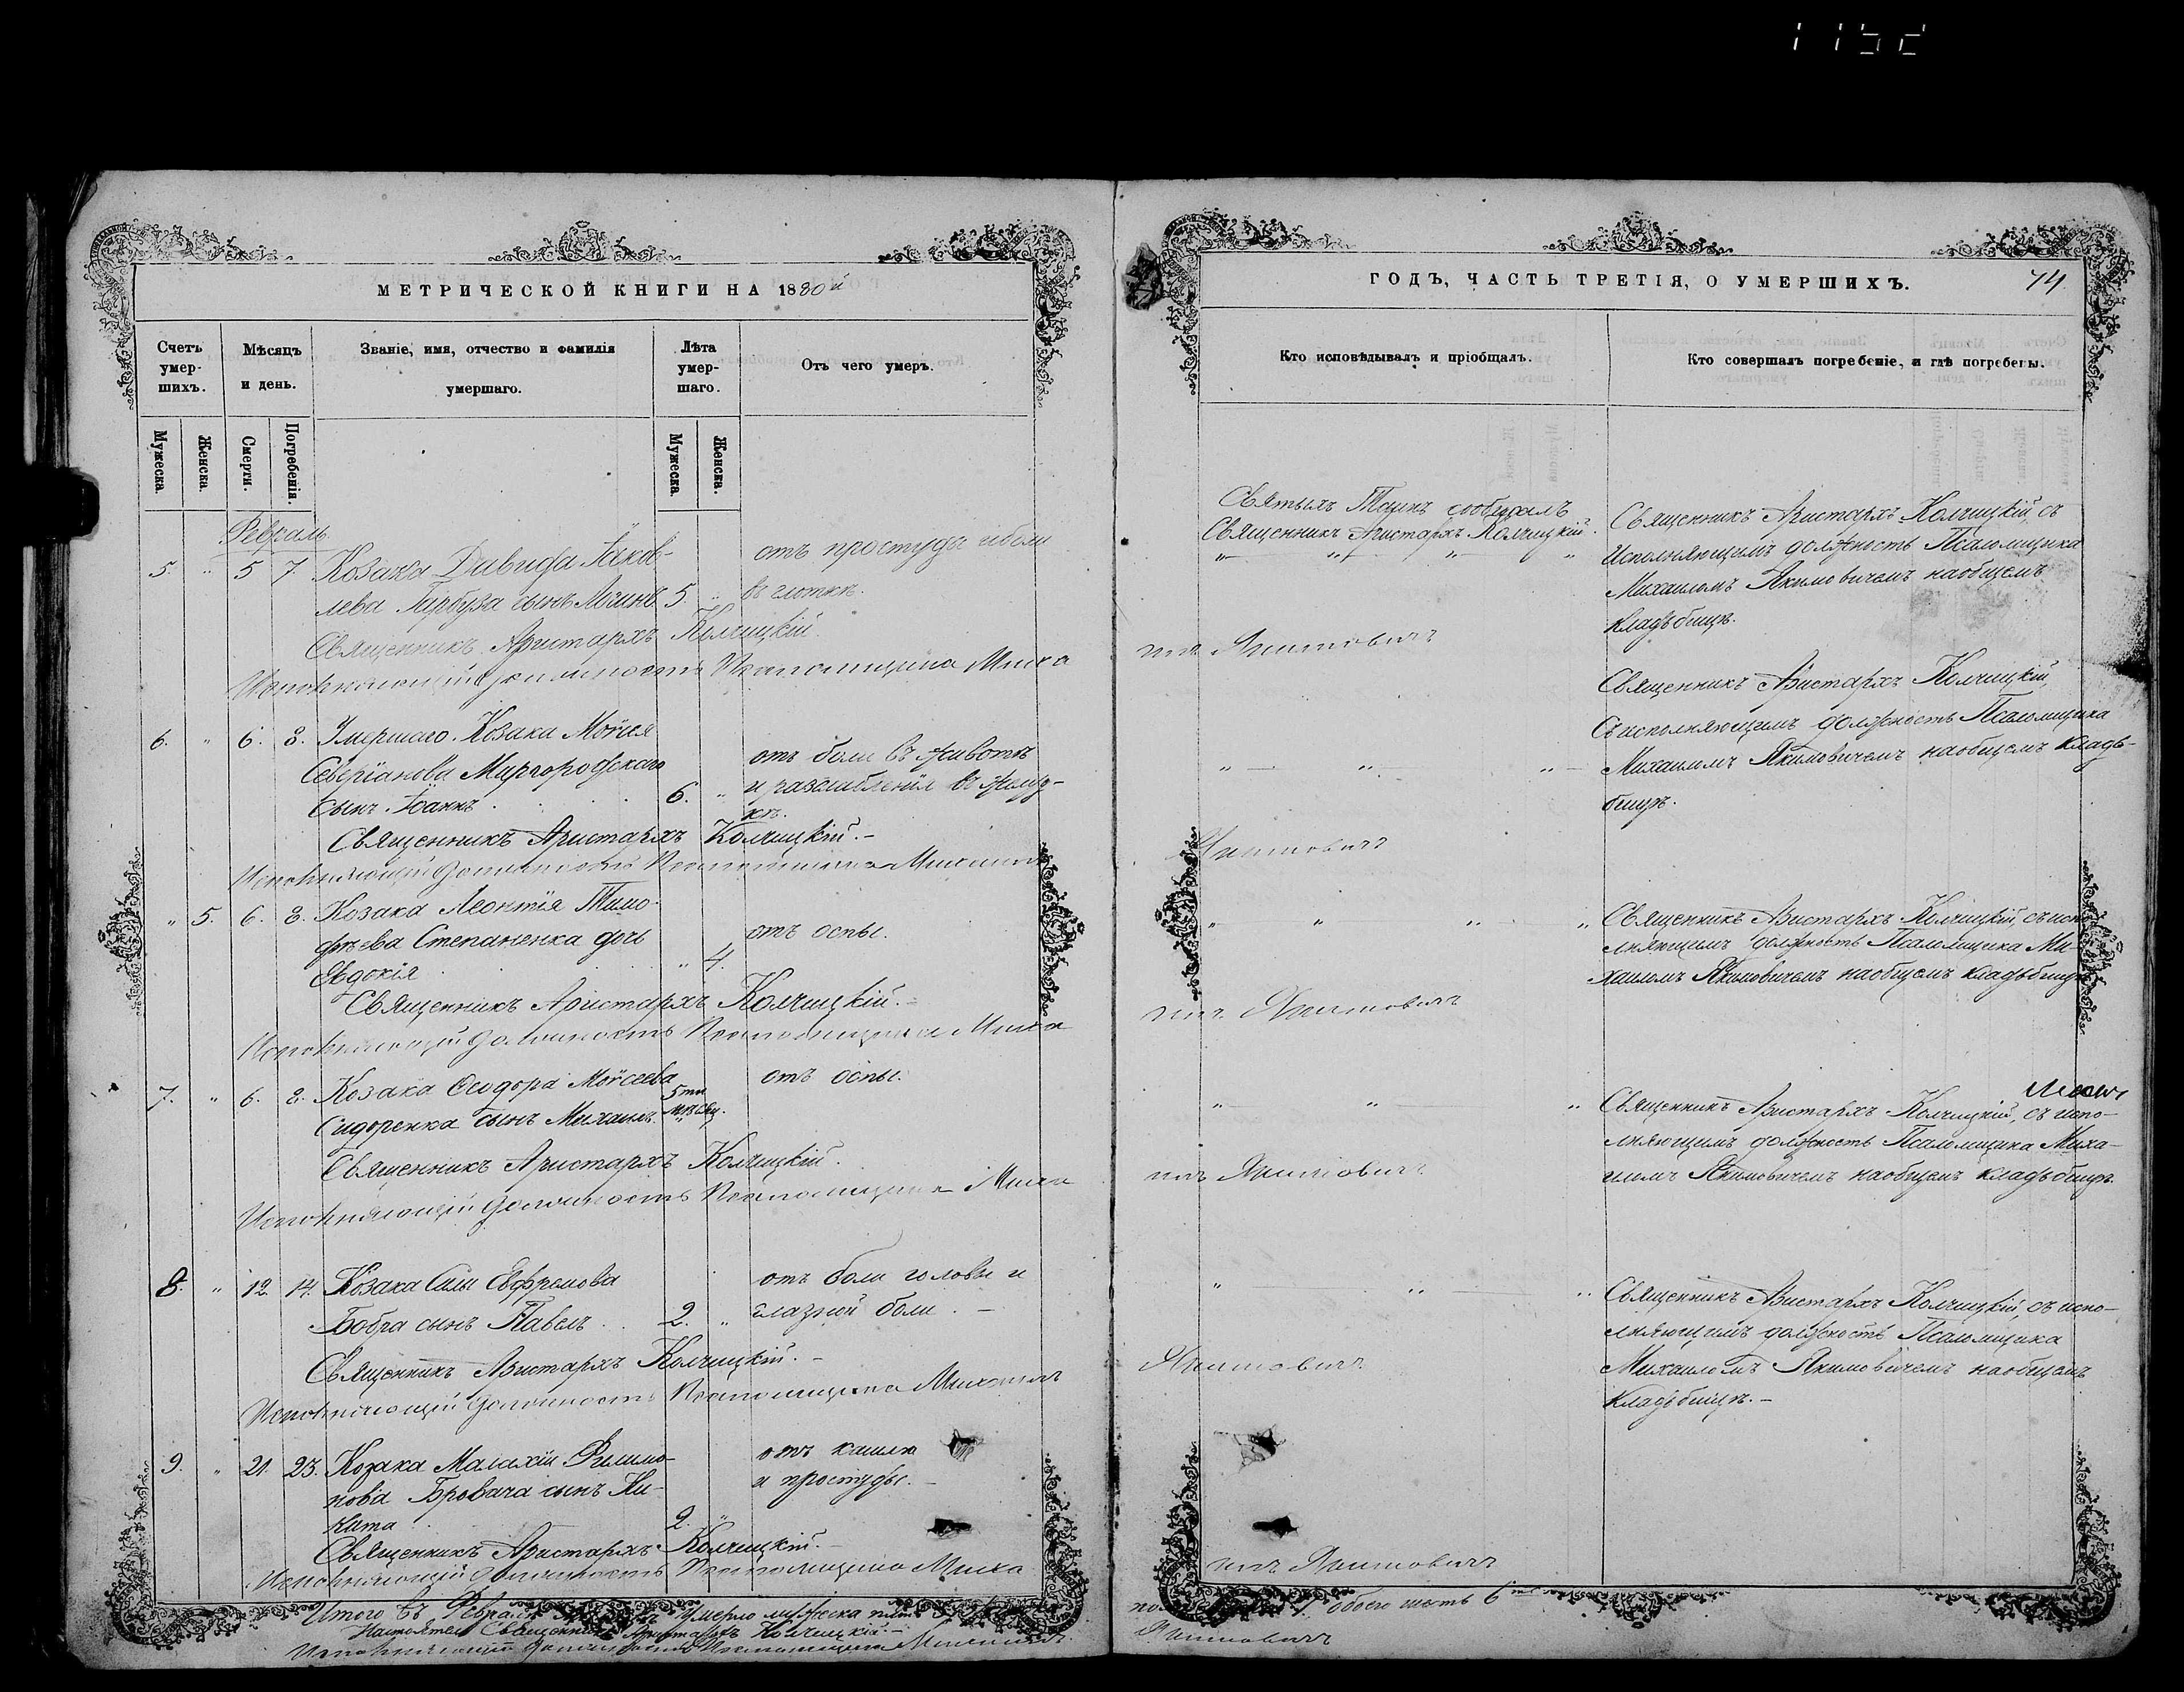 1152
МЕТРИЧЕСКОЙ КНИГИ НА 1880й
Счетъ умер-шихъ.
Мѣсяцъ и день.
Званіе, имя, отчество и фамилія умершаго.
Лѣта умер-шаго.
Отъ чего умеръ.
Мужеска.
Женска.
Смерти.
Погребенія.
Мужеска.
Женска.
Февраль
5. " 5 7 Козака Давида Іаков-
отъ простуды и боли
лева Гарбуза сынъ 5 "
въ глоткѣ.
Священникъ Аристархъ Колчицкій.
Исполняющій должность Псаломщика Миха
6. " 6. 8. Умершаго Козака Моѵсея
Северіанова Миргородскаго
отъ боли въ животѣ
сынъ Іоаннъ 6. "
и разслабленія въ желуд-
кѣ.
Священникъ Аристархъ Колчицкій.-
Исполняющій должность Псаломщика Михаилъ
" 5. 6. 8. Козака Леонтія Тимо-
фѣева Степаненка дочь
отъ оспы.
Евдокія " 4.
Священникъ Аристархъ Колчицкій.-
Исполняющій должность Псаломщика Миха
7. " 6. 8. Козака Ѳеодора Моѵсеева 5ти
отъ оспы.
Сидоренка сынъ Михаилъ.
Священникъ Аристархъ Колчицкій.
Исполняющій должность Псаломщика Миха
8. " 12. 14. Козака Силы Ефремова
отъ боли головы и
Бобра сынъ Павелъ 2. "
глазной боли.-
Священникъ Аристархъ Колчицкій.-
Исполняющій должность Псаломщика Михаилъ
9. " 21. 23. Козака Малахіи Филимо-
отъ кашля
нова Бровача сынъ Ни-
и простуды.-
кита 2. "
Священникъ Аристархъ Колчицкій.-
Исполняющій должность Псаломщика Миха
Итого въ Февралѣ умерло мужеска пять 5
Настоятель Священникъ Аристархъ Колчицкій.-
Исполняющій должность Псаломщика Михаилъ
ГОДЪ, ЧАСТЬ ТРЕТІЯ, О УМЕРШИХЪ.
74
Кто исповѣдывалъ и пріобщалъ.
Кто совершалъ погребеніе, и гдѣ погребены.
Святыхъ Таинъ сообщалъ
Священникъ Аристархъ Колчицкій.
" " " "
Священникъ Аристархъ Колчицкій, съ
Исполняющимъ должность Псаломщика
Михаиломъ Якимовичемъ на общемъ
кладбищѣ.
илъ Якимовичъ
Священникъ Аристархъ Колчицкій,
Съ исполняющимъ должность Псаломщика
" " "
Михаиломъ Якимовичемъ на общемъ кладъ-
бищѣ.
Якимовичъ
" " " "
Священникъ Аристархъ Колчицкій, съ испо-
лняющимъ должность Псаломщика Ми-
хаиломъ Якимовичемъ на общемъ кладъбищѣ
илъ Якимовичъ
" " "
Священникъ Аристархъ Колчицкій, съ испо-
лняющимъ должность Псаломщика Миха-
иломъ Якимовичемъ на общемъ кладъбищѣ.
илъ Якимовичъ
" " "
Священникъ Аристархъ Колчицкій, съ испо-
лняющимъ должность Псаломщика
Михаиломъ Якимовичемъ на общемъ
кладъбищѣ.-
Якимовичъ
илъ Якимовичъ
обоего шесть 6
Якимовичъ